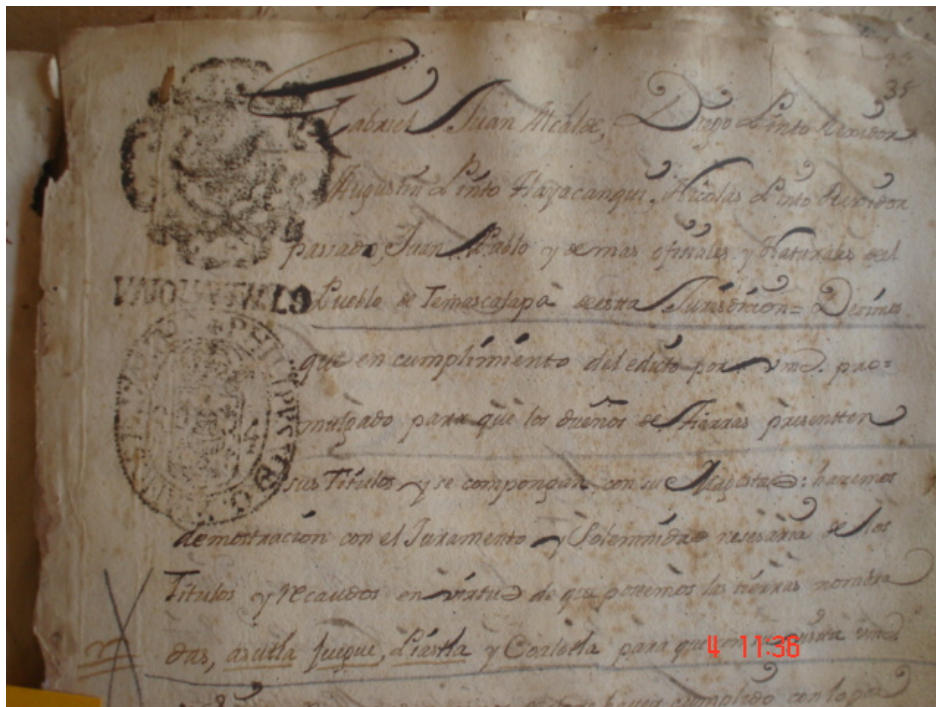 35
Gabriel Juan Alcalde, Diego Pinto Rexidor
Augustin Pinto Tlayacanqui, Nicolas Pinto Rexidor
passado, Juan Pablo y demas ofisiales y Naturales del
Pueblo de Temascalapa de esta Jurisdicion = Decimos
que en cumplimiento del edicto por vmd. pro=
mulgado para que los dueños de tierras presentten
sus Titulos y se compongan con su Magestad: hazemos
demostracion con el Juramento y Solemnidad nesesaria de los
Titulos y recaudos en virtud de que poseemos las tierras nombra
das, asutla Jueque, Liastla y Coalotla para que en vista vmd
haver cumplido con lo
4 11:36